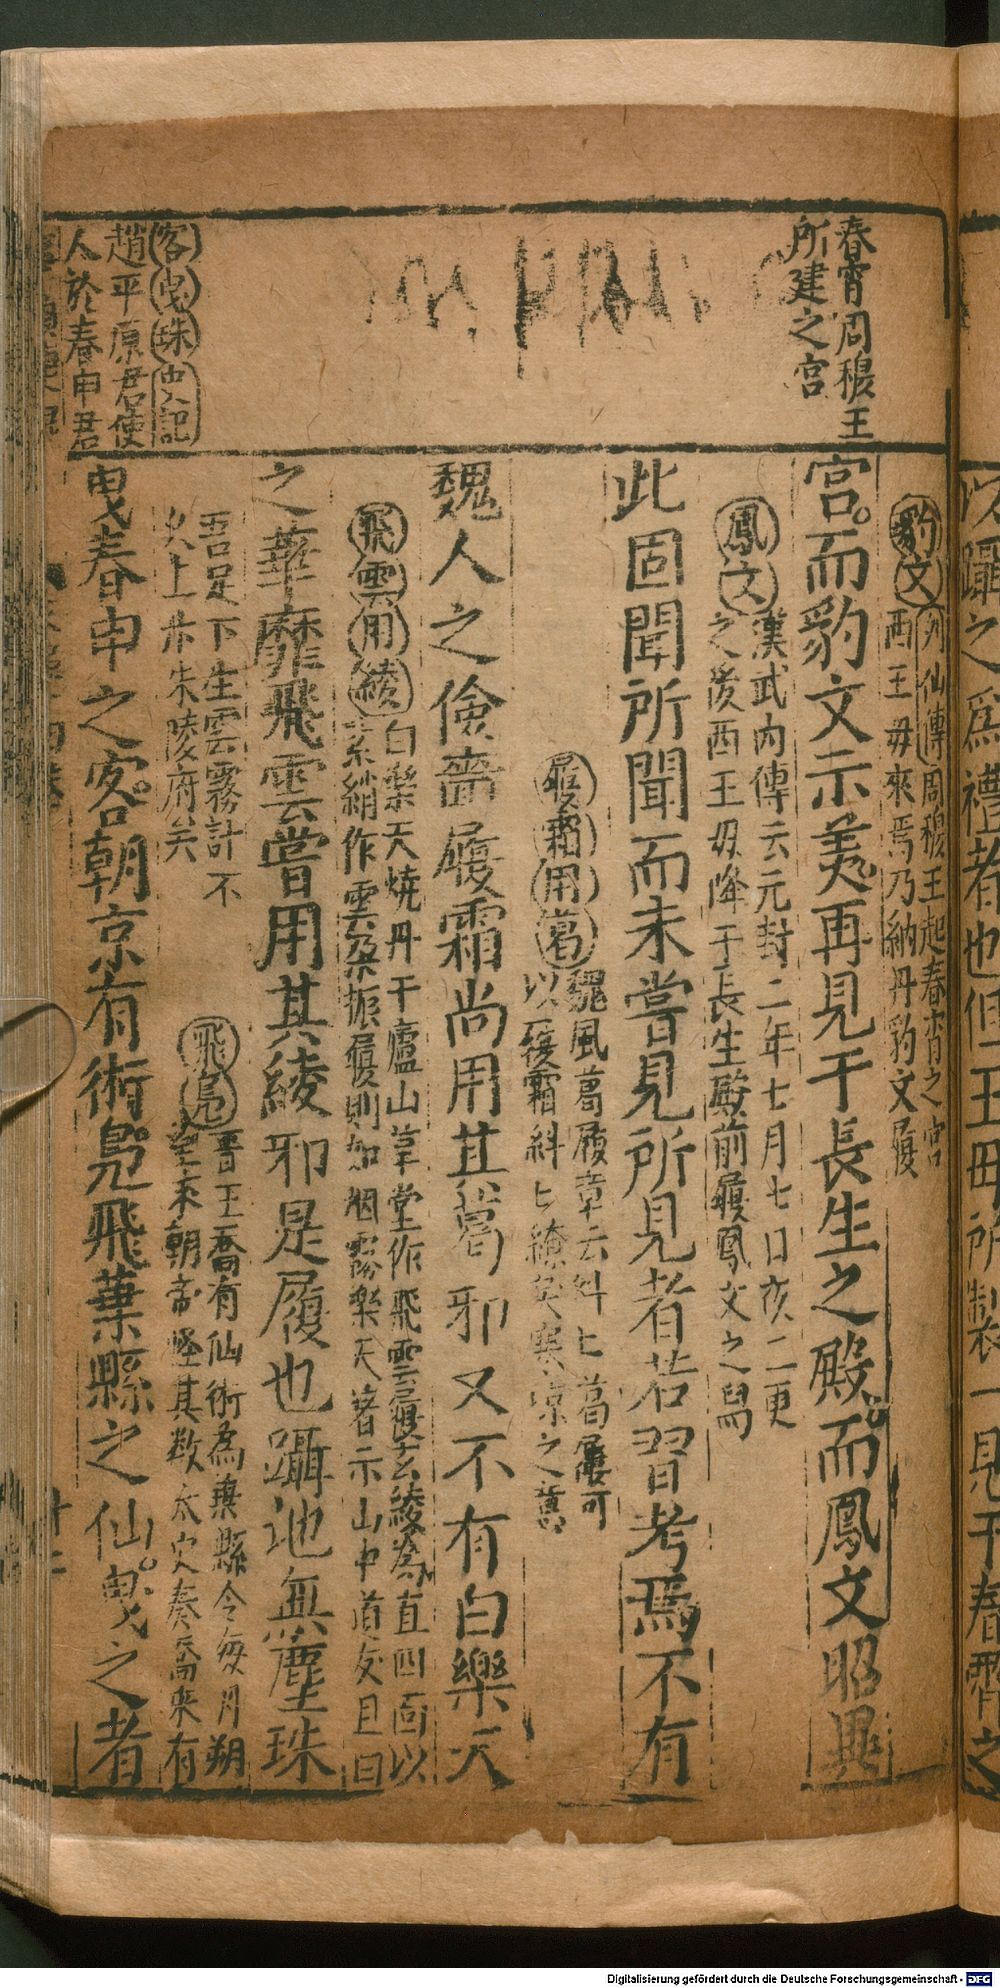 春宵周穆王
所建之宮
豹文列仙傳周穆王起春宵之宮
西王母來焉乃納丹豹文履
宮而豹文示美再見于長生之殿而鳳文昭異
鳳文漢武內傳云元封二年七月七日夜二更
之後西王母降于長生殿前履鳳文之舄
此固聞所聞而未嘗見所見者若習考焉不有
履霜用葛魏風葛屨章云糾匕葛屨可
以履霜糾匕繚戾寒凉之意
魏人之儉嗇履霜尚用其葛邪又不有白樂天
飛雲用綾白樂天燒丹于廬山草堂作飛雲履玄綾為直四面以
素綃作雲朵振履則如烟霧樂天著示山中道友且曰
之華靡飛雲嘗用其綾邪是履也躡地無塵珠
吾足下生雲霧計不
久上步朱陵府矣
飛鳧晉王喬有仙術為葉縣令每月朔
來朝帝怪其數太史奏喬來有
客曳珠史記
趙平原君使
人於春申君
曳春申之客朝京有術鳧飛葉縣之仙曳之者
以躡之爲禮者也但王母所製一見于春霄之
Digitalisierung gefördert durch die Deutsche Forschungsgemeinschaft - DFG